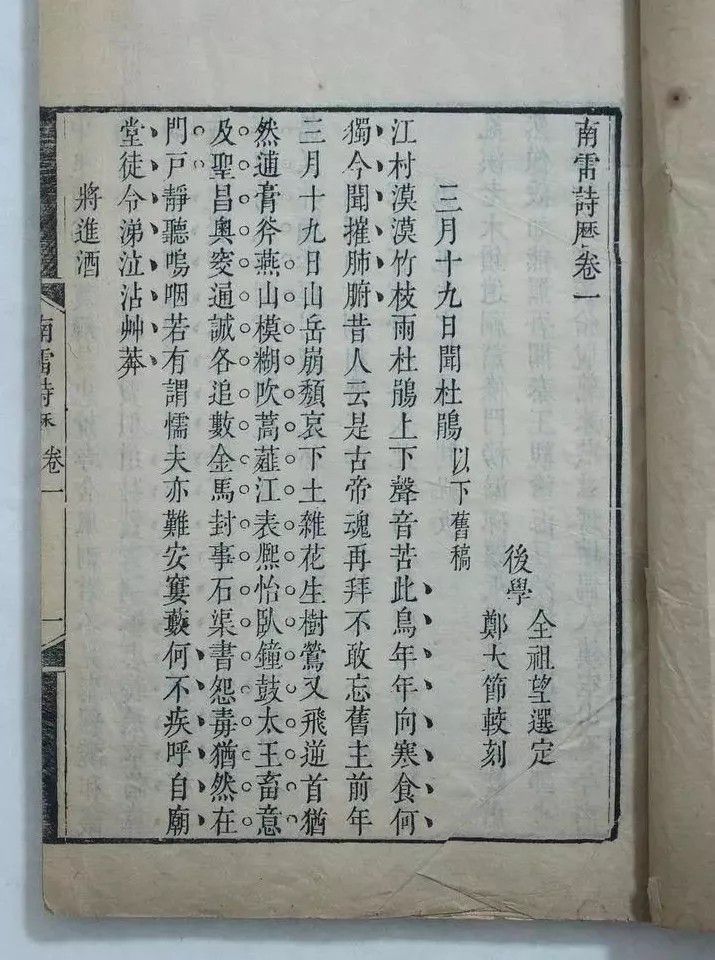 南雷詩厤卷一
後學
全祖望選定
鄭大節較刻
三月十九日聞杜鵑以下舊稿
江村漠漠竹枝雨杜鵑上下聲音苦此鳥年年向寒食何
獨今聞摧肺腑昔人云是古帝魂再拜不敢忘舊主前年
三月十九日山岳崩頹哀下土雜花生樹鶯又飛逆首猶
然逋膏斧燕山模糊吹蒿薤江表熈怡臥鐘鼓太王畜意
及聖昌奥窔通誠各追數金馬封事石渠書怨毒猶然在
門戸靜聽嗚咽若有謂懦夫亦難安窶藪何不疾呼自廟
堂徒令涕泣沾艸莽
將進酒
南雷詩厤 卷一 一